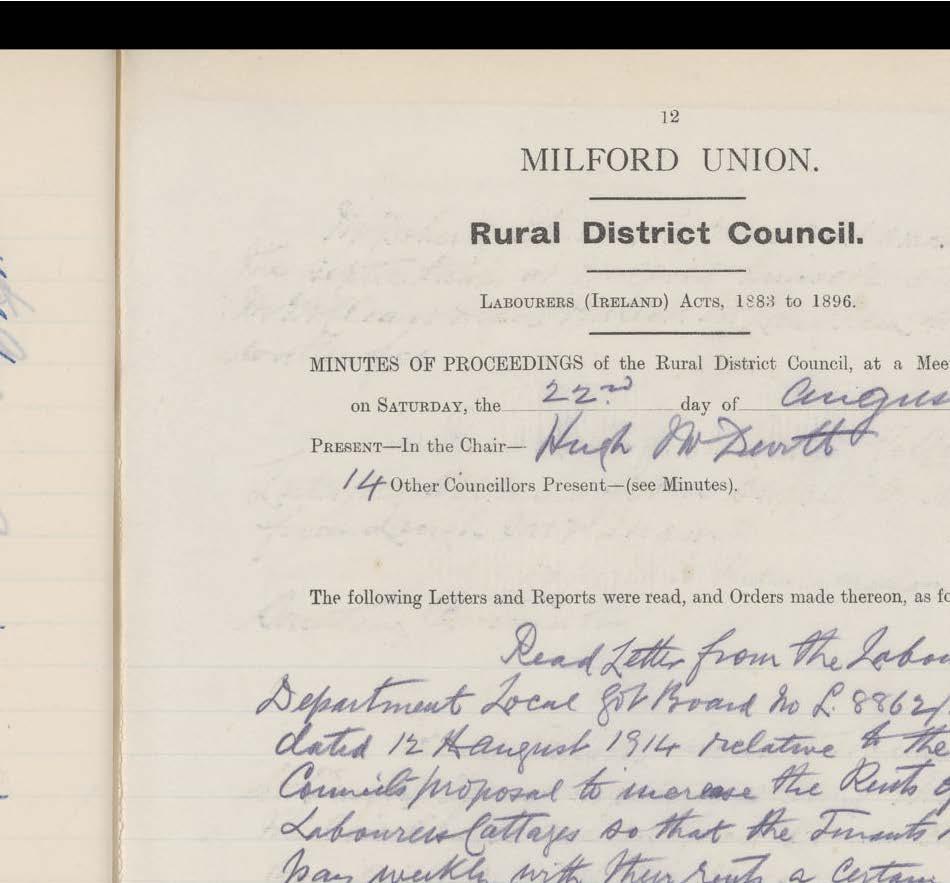 12
MILFORD UNION.
Rural District Council.
LABOURERS (IRELAND) ACTS, 1883 to 1896.
MINUTES OF PROCEEDINGS of the Rural District Council, at a Mee
on SATURDAY, the 22nd day of Augus
PRESENT—In the Chair— Hugh McDevitt
14 Other Councillors Present—(see Minutes).
The following Letters and Reports were read, and Orders made thereon, as fo
Read Letter from the Labou
Department Local Govt Board No L. 8862/
dated 12th August 1914 relative to the
Council's proposal to increase the Rents o
Labourers Cottages so that the Tenants
pay weekly with their rents a certain